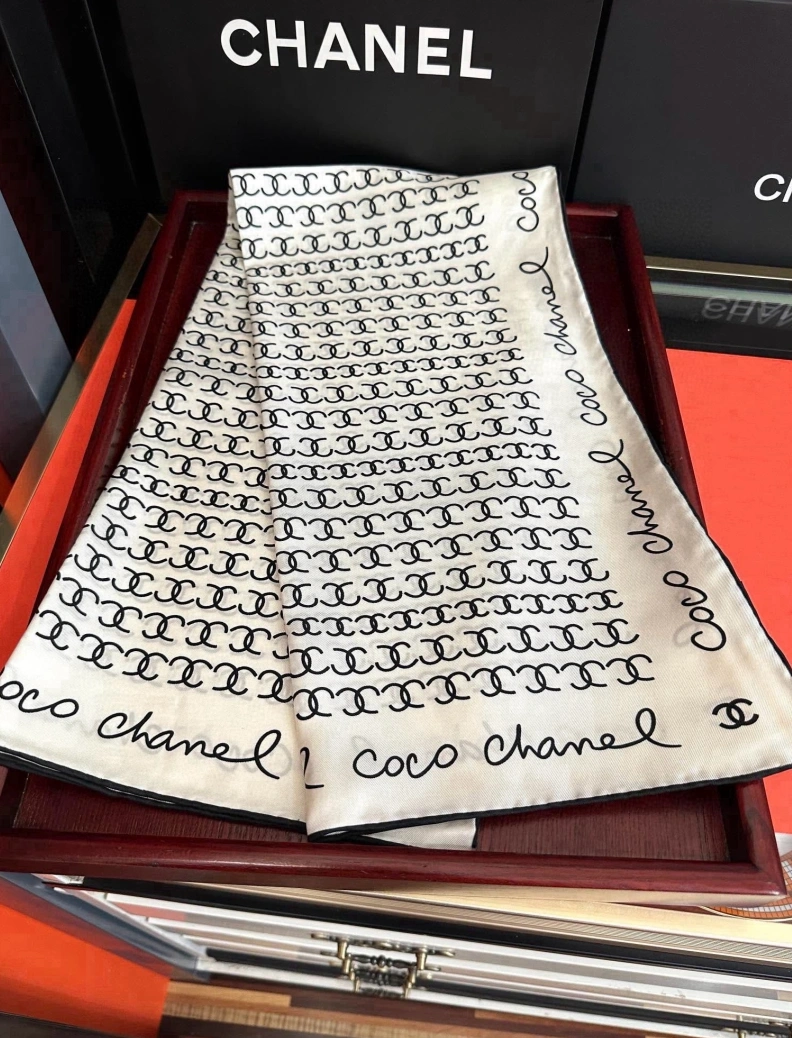 CHANEL
coco
coco chanel
coco chanel
coco chanel
coco chanel